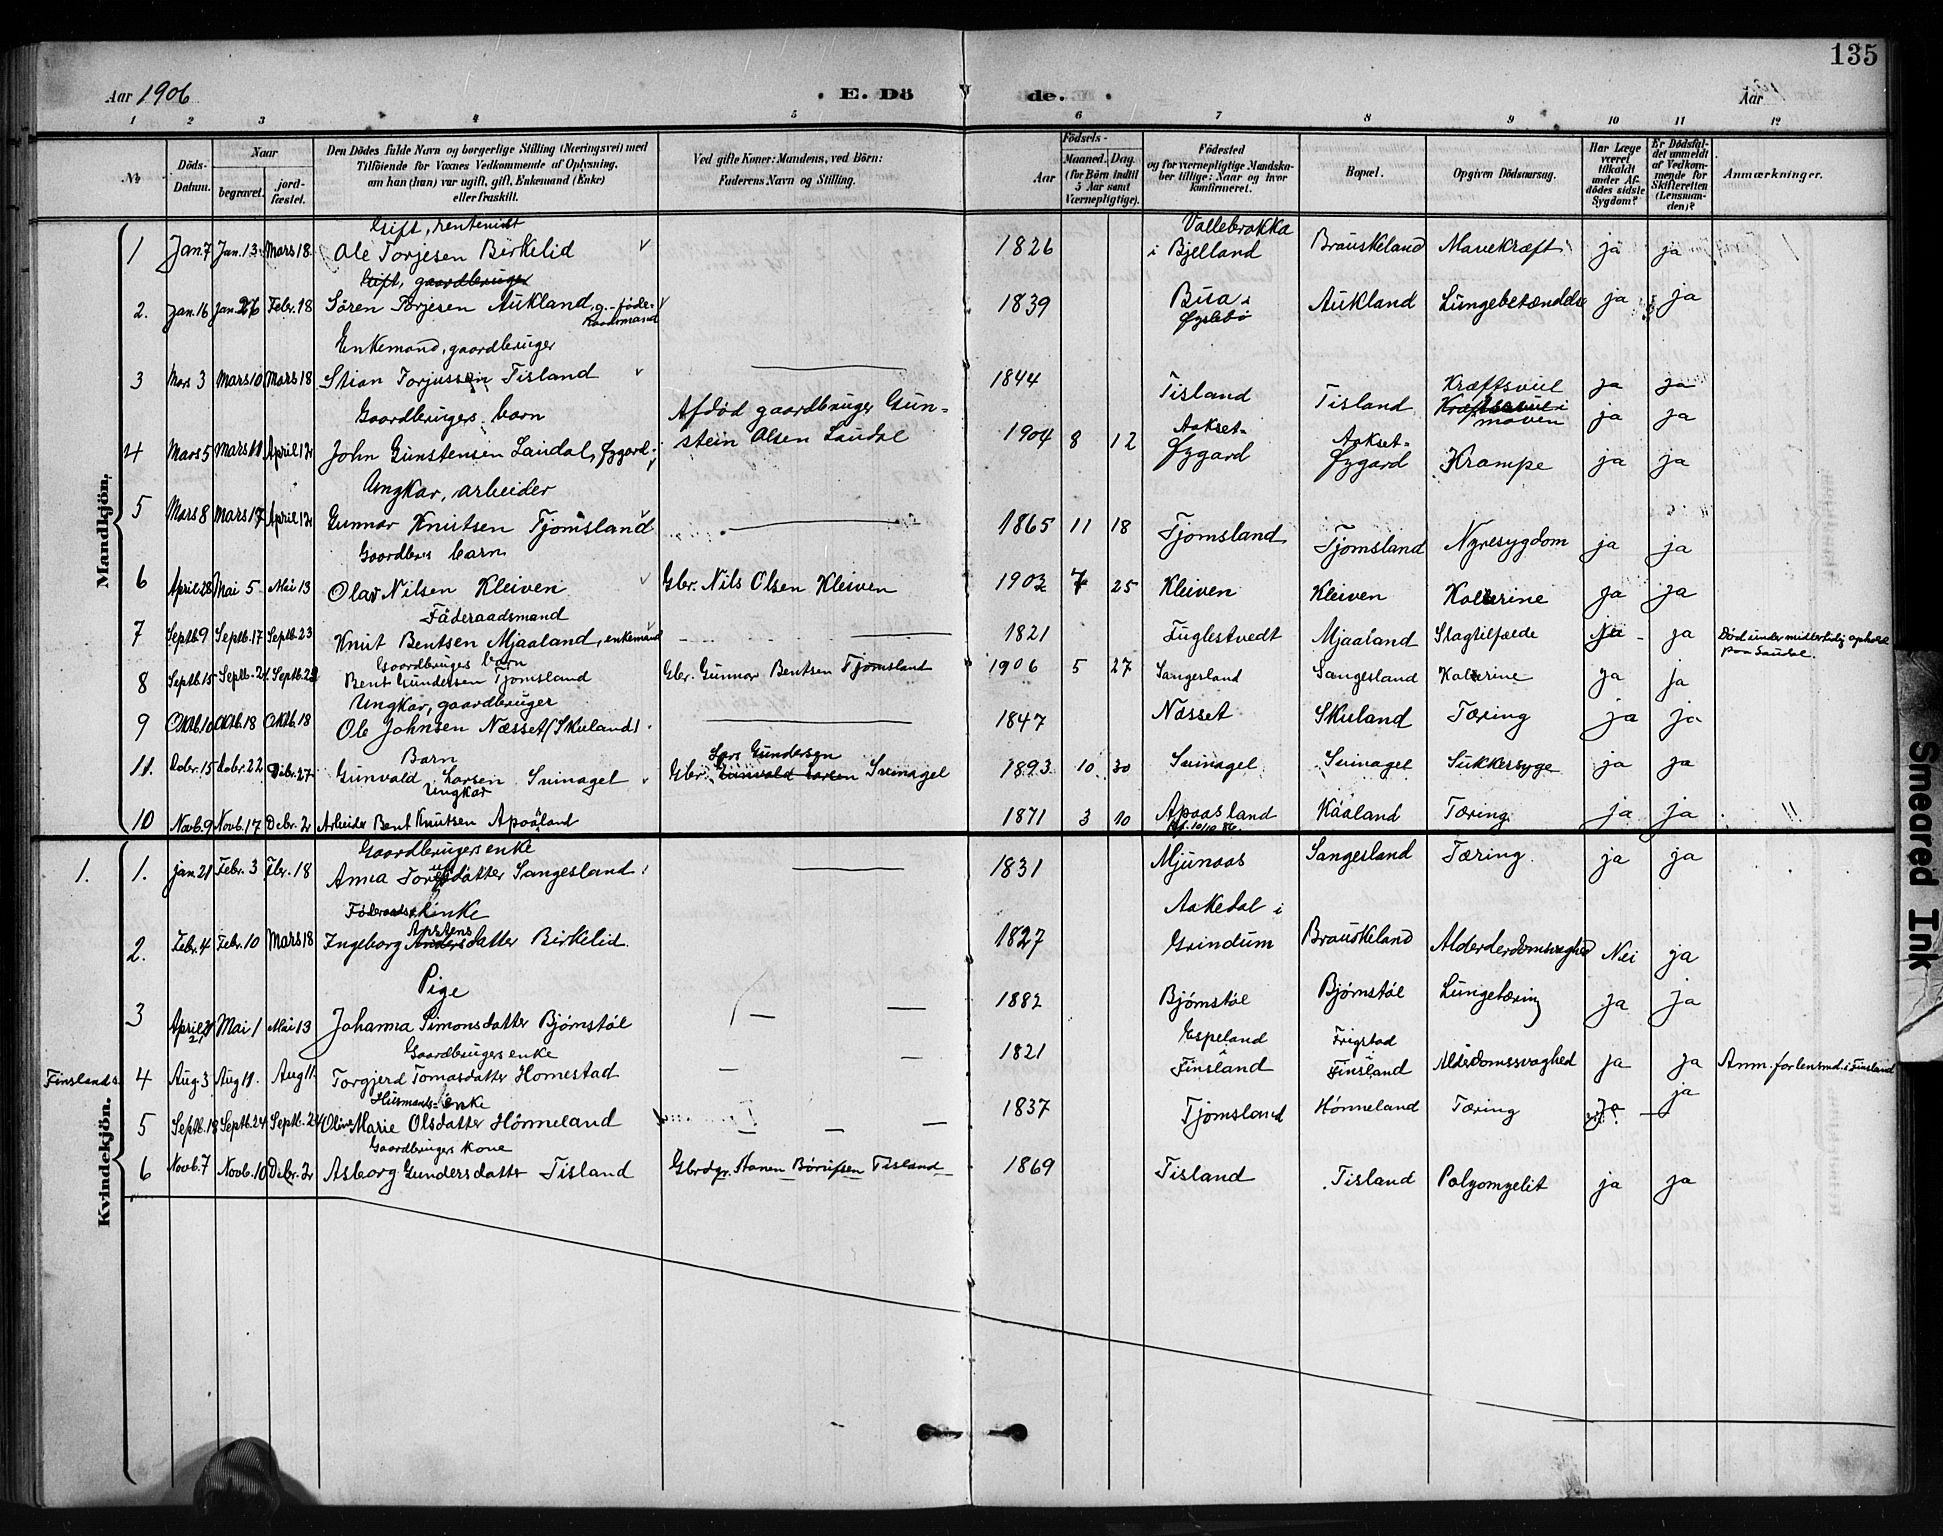 135
Aar 1906 . E. Dö de. . Aar
1 2 3 4 5 6 7 8 9 10 11 12
№ Döds-Datum. Naar begravet. jordfæstet. Den Dödes fulde Navn og borgerlige Stilling (Næringsvei) med Tilföiende for Voxnes Vedkommende af Oplysning, om han (hun) var ugift, gift, Enkemand (Enke) eller fraskilt. Ved gifte Koner: Mandens, ved Börn: Faderens Navn og Stilling. Födsels- Aar Maaned. Dag. (for Börn indtil 5 Aar samt Værnepligtige). Födested og for værnepligtige Mandskaber tillige: Naar og hvor konfirmeret. Bopæl. Opgiven Dödsaarsag. Har Læge været tilkaldt under Afdödes sidste Sygdom? Er Dødsfaldet anmeldt af Vedkommende for Skifteretten (Lensmanden)? Anmærkninger.
Mandkjön.
Gift, Vallebrokka
1 Jan. 7 Jan. 13 Mars 18 Ole Torjesen Birkelid 1826 i Bjelland Brauskeland Mavekræft ja ja
Gift, gaardbruger
2. Jan. 16 Jan. 26 Febr. 18 Sören Torjesen Aukland, g.-føderaadsmand 1839 Bua i Øyslebø Aukland Lungebetændelse ja ja
Enkemand, gaardbruger
3 Mars 3 Mars 10 Mars 18 Stian Torjussen Tisland 1844 Tisland Tisland Kræftsvul Kræftsvul i maven ja ja ja ja
Gaardbrugers barn
4 Mars 5 Mars 11 April 12 John Gunstensen Laudal, Øygard Afdöd gaardbruger Gunstein Olsen Laudal 1904 8 12 Aakset-Øygard Aakset-Øygard Krampe ja ja
Ungkar, arbeider
5 Mars 8 Mars 17 April 12 Gunnar Knutsen Tjomsland 1865 11 18 Tjomsland Tjomsland Nyresygdom ja ja
Gaardbrs barn
6 April 28 Mai 5 Mai 13 Olav Nilsen Kleiven Gbr. Nils Olsen Kleiven 1902 7 25 Kleiven Kleiven ja ja
Föderaadsmand
7 Septb. 9 Septb. 17 Septb. 23 Knut Bentsen Mjaaland, enkemand 1821 Fuglestvedt Mjaaland Slagtilfælde ja ja Död under midlertidig ophold paa Laudal.
Gaardbruges barn
8 Septb. 15 Septb. 21 Septb. 23 Bent Gundersen Tjomsland Gbr. Gunnar Bentsen Tjomsland 1906 5 27 Sangesland Sangesland ja ja
Ungkar, gaardbruger
9 Oktb. 10 Oktb. 18 Oktb. 18 Ole Johnsen Næsset (Skuland) 1847 Næsset Skuland Tæring ja ja
Barn Lars Gundersen
11. Dcbr. 15 Dcbr. 22 Dcbr. 27 Gunvald Larsen Svinagel Gbr. Gunvald Larsen Svinagel 1893 10 30 Svinagel Svinagel Sukkersyge ja ja
Ungkar
10 Novb. 9 Novb. 17 Decbr. 2 Arbeider Bent Knutsen Apaaland 1871 3 10 Apaasland Kaaland Tæring ja ja "
Kvindekjön.
Gaardbrugers enke
1. 1. Jan. 21 Febr. 3 Fbr. 18 Anna Toresdatter Sangesland 1831 Mjunaas Sangesland Tæring ja ja
Föderaads enke
2. Febr. 4 Febr. 10 Mars 18 Ingeborg Andersdatter Birkelid 1827 Aakedal i Grindum Brauskeland Alderderdomsvaghed Nei ja
Pige
3 April 21 Mai 1 Mai 13 Johanna Simonsdatter Bjørnstøl 1882 Bjørnstøl Bjørnstøl Lungetæring ja ja
Gaardbrugers enke
Finslands. 4 Aug. 3 Aug. 11. Aug 11 Torgjerd Tomasdatter Homestad 1821 Espeland i Finsland Frigstad Finsland Alderdomssvaghed ja ja Anm. for lensmd. i Finsland
Husmands enke
5 Septb. 18 Septb. 24 Septb. 24 Oline Marie Olsdatter Hønneland 1837 Tjomsland Hønneland Tæring ja ja
Gaardbrugers kone
6 Novb. 7 Novb. 10 Decbr. 2 Asborg Gundersdatter Tisland Tisland 1869 Tisland Tisland Polyomyelit ja ja
Smeared Ink